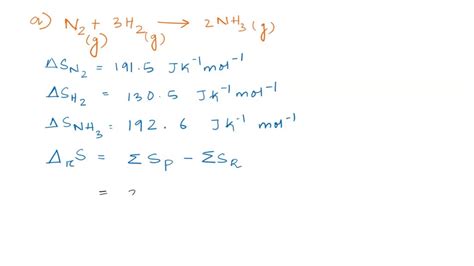 a) N₂(g) + 3H₂(g) → 2NH₃(g)
ΔS_N₂ = 191.5 JK⁻¹mol⁻¹
ΔS_H₂ = 130.5 JK⁻¹mol⁻¹
ΔS_NH₃ = 192.6 JK⁻¹ mol⁻¹
Δ_rS = ΣS_P − ΣS_R
=